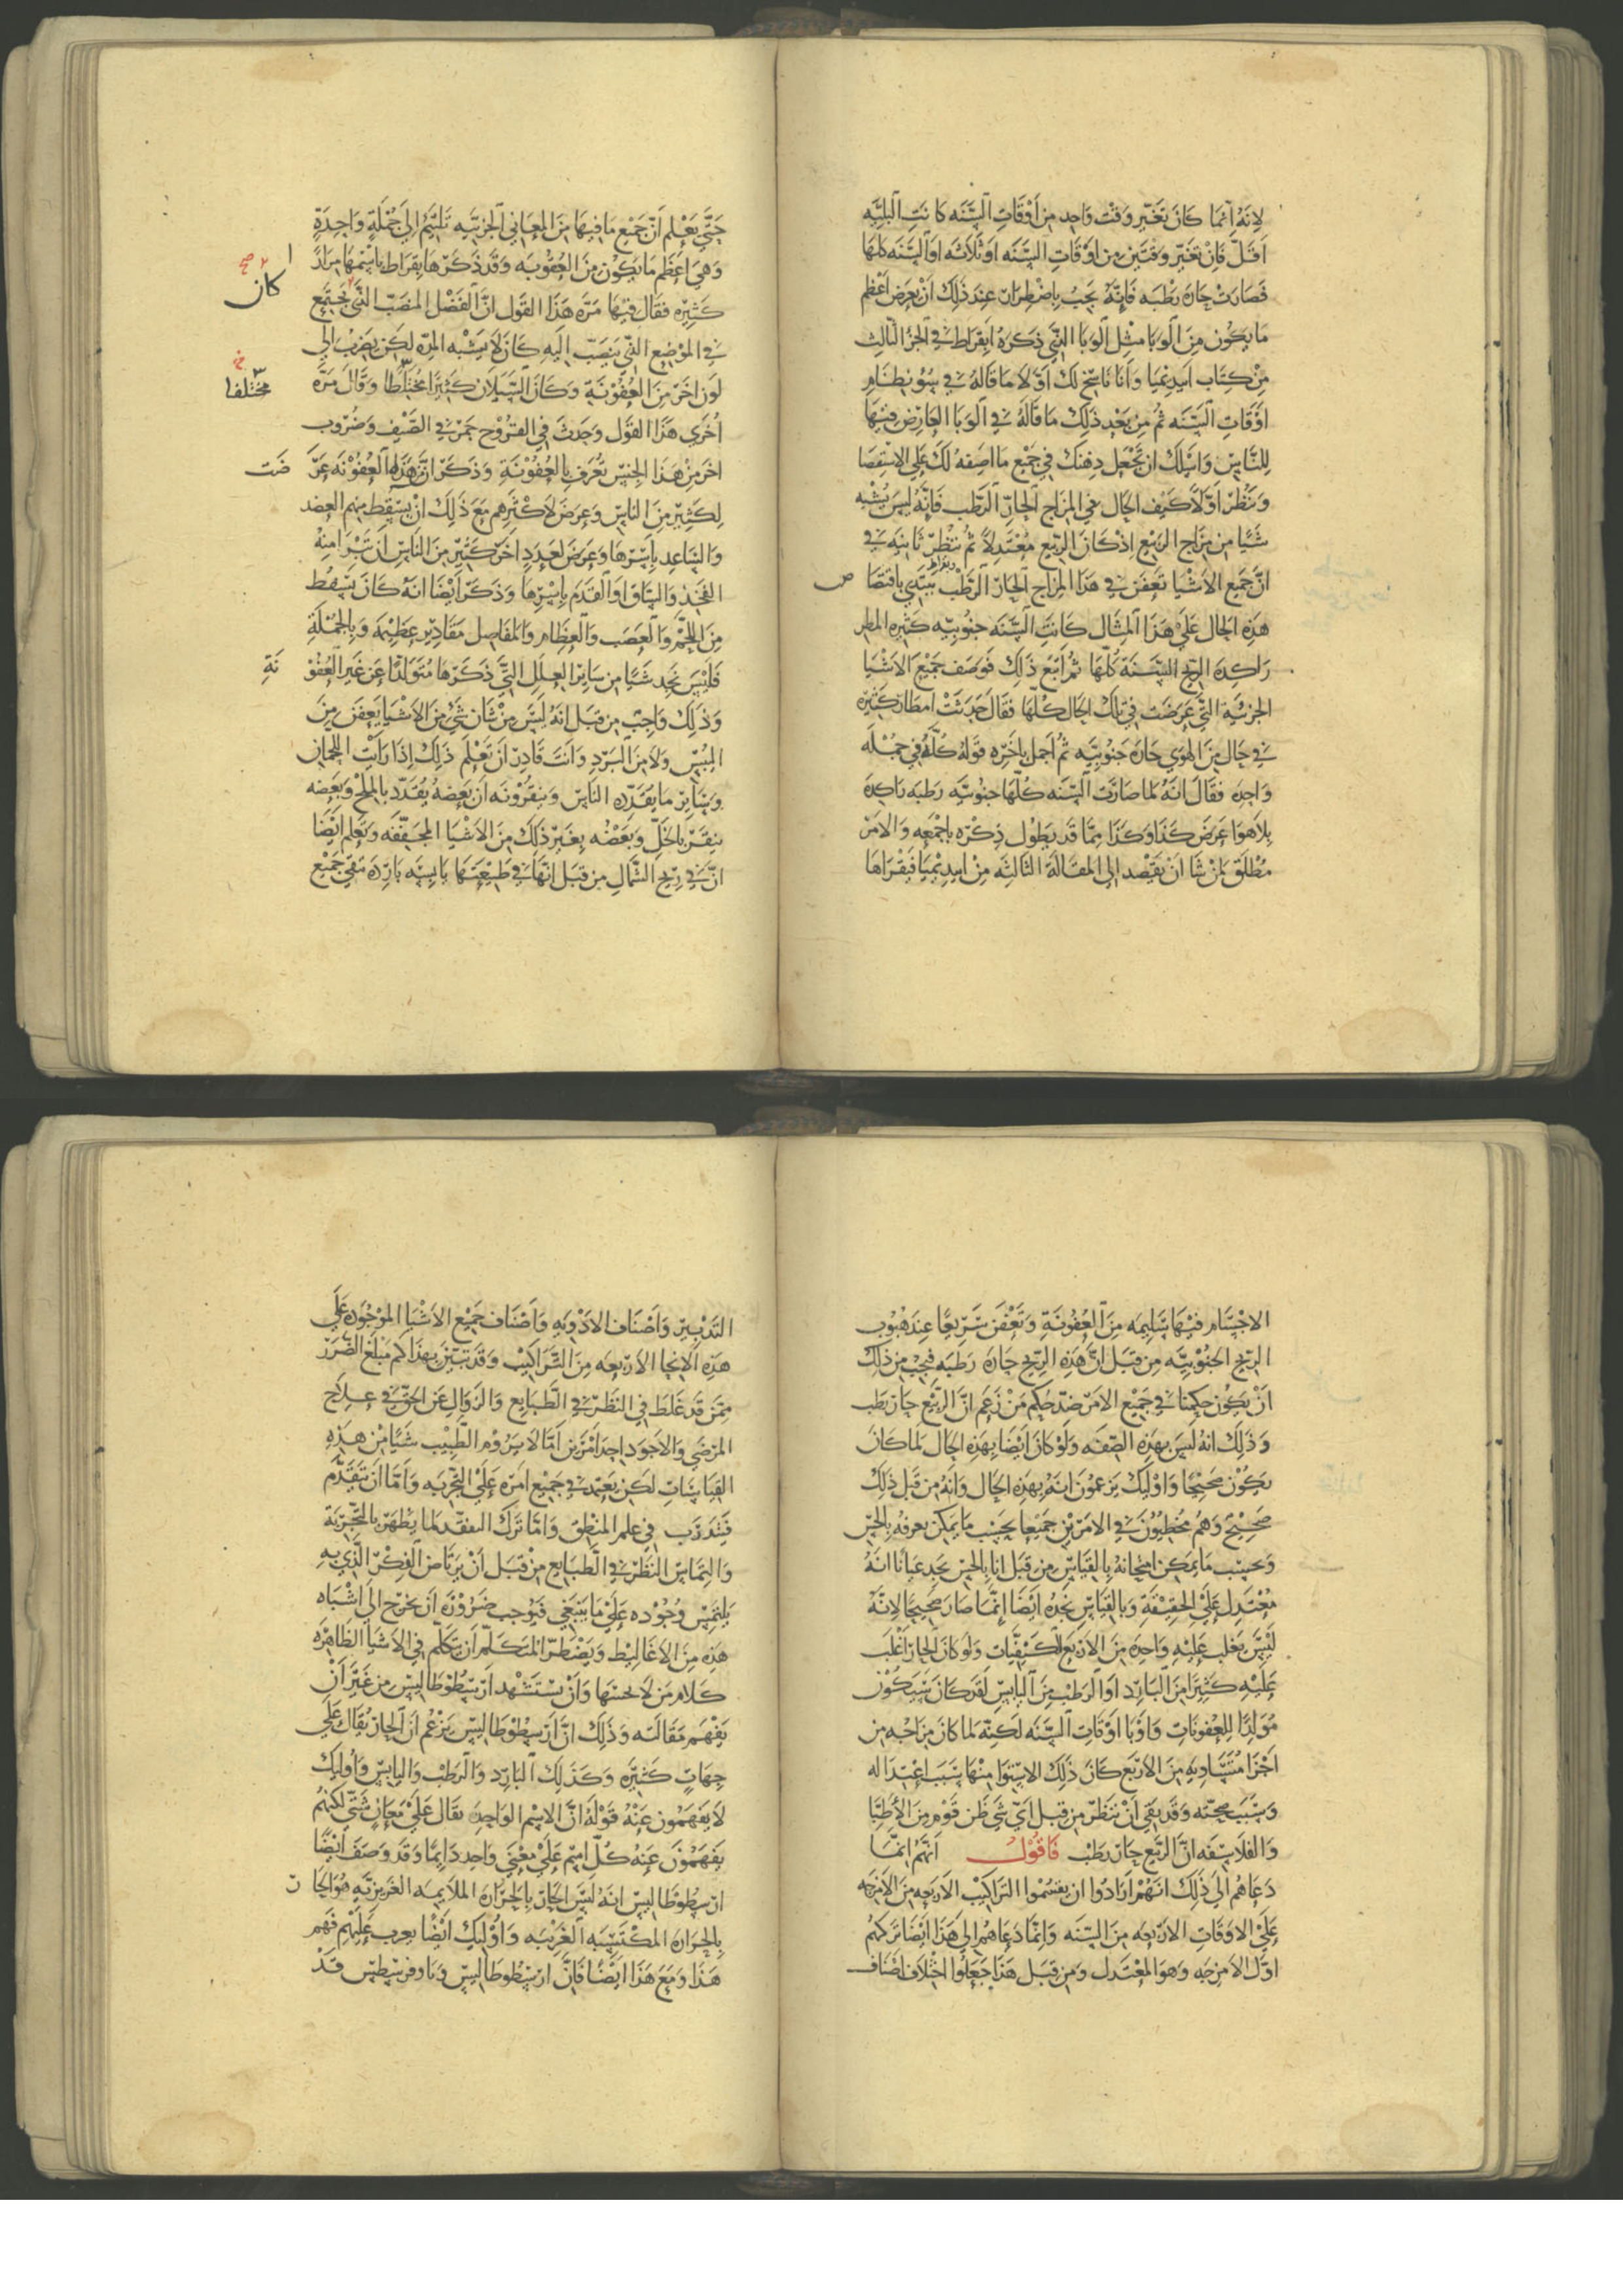 لانه انما كان تغير وقت واحد من اوقات السنه كانت البليه
اقل فان تغير وقتين من اوقات السنه او ثلاثه او السنه كلها
فصارت حاره رطبه فانه يجب باضطرار عند ذلك ان يعرض اعظم
ما يكون من الوبا مثل الوبا الذي ذكره ابقراط في الجزء الثالث
من كتاب ابيديميا وانا ناسخ لك اولا ما قاله في سو نظام
اوقات السنه ثم من بعد ذلك ما قاله في الوبا العارض فيها
للناس واسلك ان تجعل ذهنك في جميع ما اصفه لك على الاستقصا
وتنظر اولا كيف الحال في المزاج الحار الرطب فانه ليس يشبه
شيا من مزاج الربيع اذ كان الربيع معتدلا ثم تنظر ثانيه في
ان جميع الاشيا تعفن في هذا المزاج الحار الرطب يبتدي باقتصا ص
هذه الحال على هذا المثال كانت السنه جنوبيه كثيره المطر
راكدة الريح السنة كلها ثم اتبع ذلك فوصف جميع الاشيا
الجزئية التي عرضت في تلك الحال كلها فقال حدثت امطار كثيره
في حال من الهوى حاره جنوبيه ثم اجمل باخره قوله كله في جمله
واحده فقال انه لما صارت السنه كلها جنوبيه رطبه راكدة
بلا هوا عرض كذا وكذا مما قد يطول ذكره باجمعه والامر
مطلق لمن شا ان يقصد الى المقالة الثالثه من ابيديميا فيقراها
حتى يعلم ان جميع ما فيها من المعاني الجزئيه تلتئم الى جملة واحدة
وهي اعظم ما يكون من العفونه وقد ذكرها بقراط باسمها مرارا
كثيره فقال فيها مره هذا القول ان الفضل المنصب الذي يجتمع
كان
في الموضع الذي ينصب اليه كان لا يشبه المره لكن يضرب الى
لون اخر من العفونة وكان السيلان كثيرا مختلطا وقال مرة
مختلفا
اخرى هذا القول وحدث في القروح جمر في الصيف وضروب
اخر من هذا الجنس تعرف بالعفونة وذكر ان هذه العفونه عر ضت
لكثير من الناس وعرض لاكثرهم مع ذلك ان يسقط منهم العضد
والساعد باسرها وعرض لعدد اخر كثير من الناس ان تبرا منه
الفخذ والساق او القدم باسرها وذكر ايضا انه كان يسقط
من اللحم والعصب والعظام والمفاصل مقادير عظيمه وبالجملة
فليس نجد شيا من ساير العلل التي ذكرها متولدا عن غير العفو نة
وذلك واجب من قبل انه ليس من شان شي من الاشيا يعفن من
اليبس ولا من البرد وانت قادر ان تعلم ذلك اذا رايت اللحمان
وساير ما يقدره الناس وينقرونه ان بعضه يقدد بالملح وبعضه
ينقر بالخل وبعضه بغير ذلك من الاشيا المجففه وتعلم ايضا
ان في ريح الشمال من قبل انها في طبيعتها يابسه بارده تبقى جميع
الاجسام فيها سليمه من العفونة وتعفن سريعا عند هبوب
الريح الجنوبيه من قبل ان هذه الريح حاره رطبه فيجب من ذلك
ان يكون حكمنا في جميع الامر ضد حكم من زعم ان الربيع حار رطب
وذلك انه ليس بهذه الصفه ولو كان ايضا بهذه الحال لما كان
يكون صحيحا واوليك يزعمون انه بهذه الحال وانه من قبل ذلك
صحيح وهم مخطيون في الامرين جميعا بحسب ما يمكن يعرفه بالحس
وبحسب ما يمكن امتحانه بالقياس من قبل انا بالحس نجد عيانا انه
معتدل على الحقيقة وبالقياس نجده ايضا انما صار صحيحا لانه
ليس يغلب عليه واحده من الاربع الكيفيات ولو كان الحار اغلب
عليه كثيرا من البارد او الرطب من اليابس لقد كان سيكون
مولدا للعفونات واوبا اوقات السنه لكنه لما كان مزاجه من
اجزا متساويه من الاربع كان ذلك الاستوا منها سبب اعتداله
وسبب صحته وقد بقي ان ننظر من قبل اي شي ظن قوم من الاطبا
والفلاسفه ان الربيع حار رطب فاقول انهم انما
دعاهم الى ذلك انهم ارادوا ان يقسموا التراكيب الاربعه من الامزجه
على الاوقات الاربعه من السنه وانما دعاهم الى هذا ايضا تركهم
اول الامزجه وهو المعتدل ومن قبل هذا جعلوا اختلاف اصناف
التدبير واصناف الادويه واصناف جميع الاشيا الموجوده على
هذه الانحا الاربعه من التراكيب وقد تبين بهذا كم مبلغ الضرر
ممن قد غلط في النظر في الطبايع والزوال عن الحق في علاج
المرضى والاجود احد امرين اما الا يروم الطبيب شيا من هذه
القياسات لكن يعتمد في جميع امره على التجربه واما ان يتقدم
فيتدرب في علم المنطق واما ترك التفقد لما يظهر بالتجربة
والتماس النظر في الطبايع من قبل ان يرتاض الفكر الذي به
يلتمس وجوده على ما ينبغي فيوجب ضرورة ان يخرج الى اشباه
هذه من الاغاليط ويضطر المتكلم ان يتكلم في الاشيا الظاهره
كلام من لا يحسها وان يستشهد ارسطوطاليس من غير ان
يفهم مقالته وذلك ان ارسطوطاليس يزعم ان الحار يقال على
جهات كثيره وكذلك البارد والرطب واليابس واوليك
لا يفهمون عنه قوله ان الاسم الواحد يقال على معان شتى لكنهم
يفهمون عنه كل اسم على معنى واحد دايما وقد وصف ايضا
ارسطوطاليس انه ليس الحار بالحراره الملايمه الغريزيه هو الحا ر
بالحراره المكتسبه الغريبه واوليك ايضا يعرب عليهم فهم
هذا ومع هذا ايضا فان ارسطوطاليس وثاوفرسطس قد